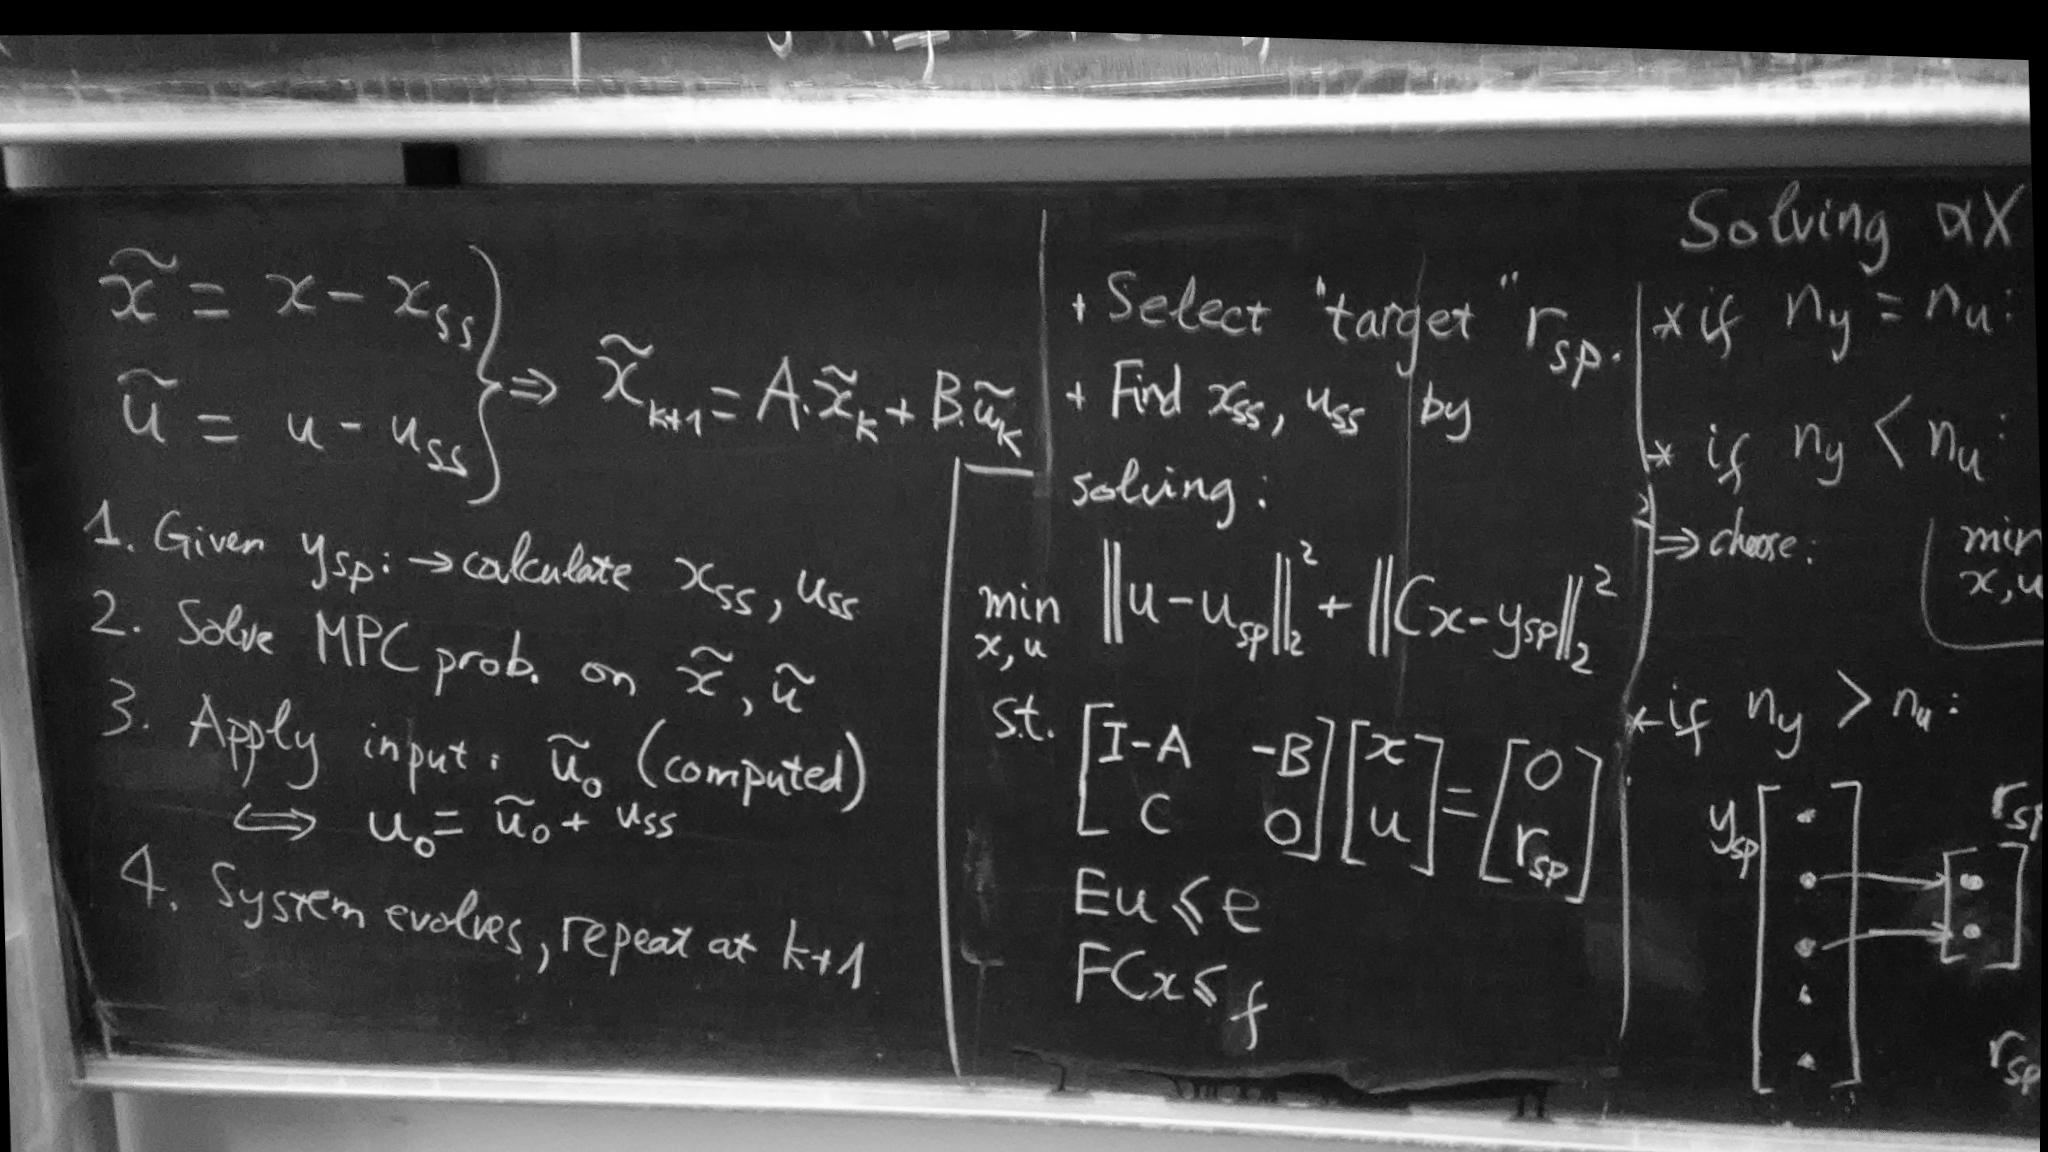 x̃ = x - x_ss
ũ = u - u_ss
} ⇒ x̃_{k+1} = A.x̃_k + B.ũ_k
1. Given y_sp: → calculate x_ss, u_ss
2. Solve MPC prob. on x̃, ũ
3. Apply input: ũ_0 (computed)
⟺ u_0 = ũ_0 + u_ss
4. System evolves, repeat at k+1
+ Select "target" r_sp.
+ Find x_ss, u_ss by
solving:
min ||u - u_sp||_2^2 + ||Cx - y_sp||_2^2
x, u
s.t. [I-A -B; C 0] [x; u] = [0; r_sp]
Eu ⩽ e
FCx ⩽ f
Solving αX
* if n_y = n_u:
* if n_y < n_u:
⇒ choose: min
x, u
* if n_y > n_u:
y_sp
r_sp
r_sp